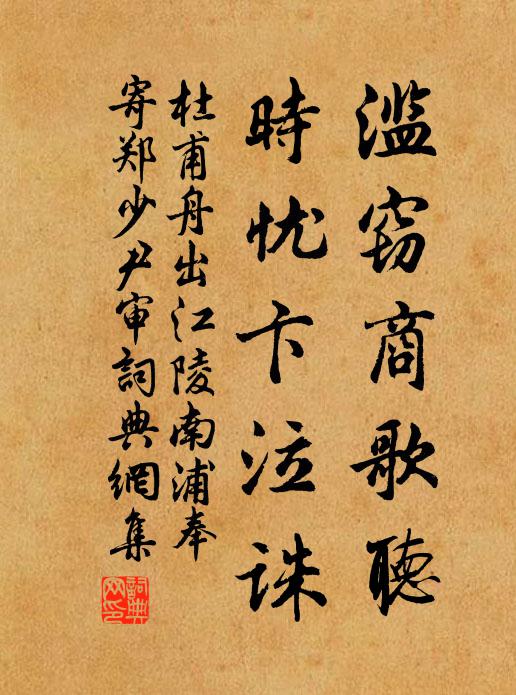 滥窃商歌聽
時忧卞泣誅
杜甫舟出江陵南浦奉
寄郑少尹审詞典網集
詞典网印